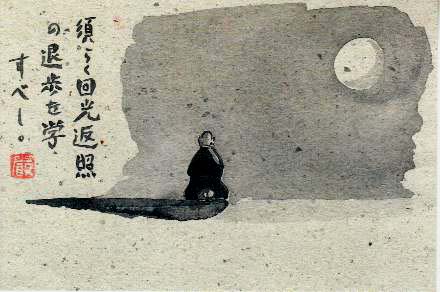 須らく回光返照
の退歩を学
すべし。
嚴